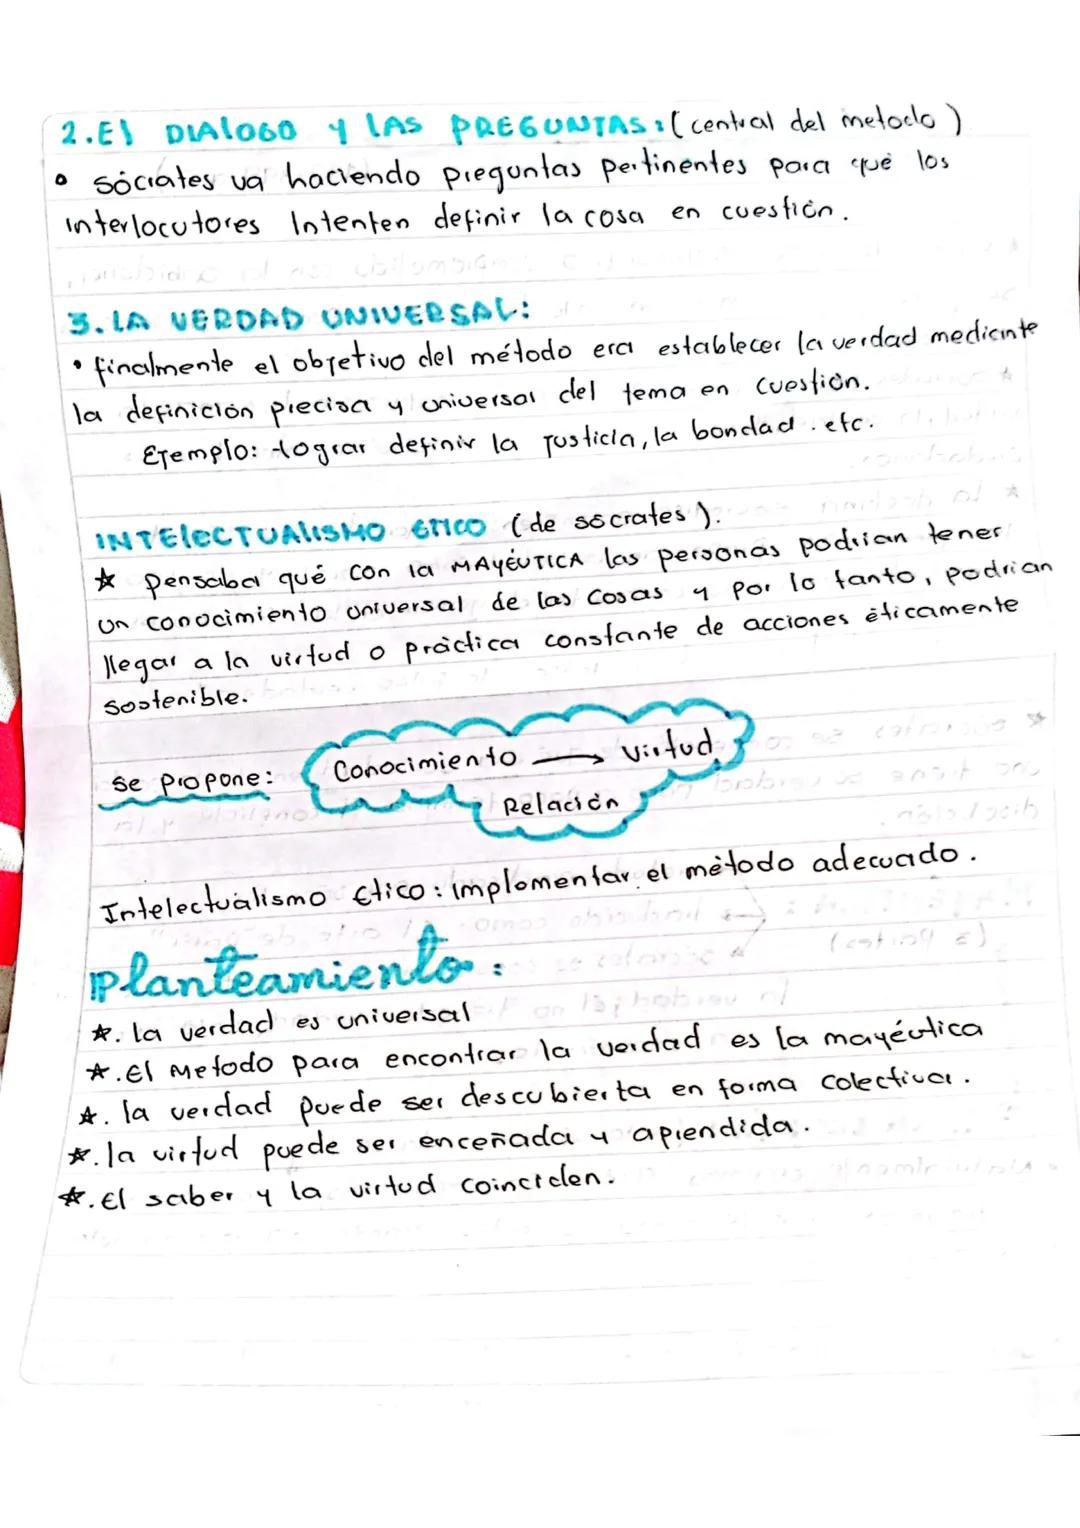 2. El DIALOGO y LAS PREGUNTAS: (central del metodo)
• sócrates va haciendo preguntas pertinentes para qué los
interlocutores Intenten definir la cosa en cuestión.
3. LA VERDAD UNIVERSAL:
• finalmente el objetivo del método era establecer la verdad mediante
la definición precisa y universal del tema en cuestión.
Ejemplo: -lograr definir la justicia, la bondad. etc.
INTELECTUALISMO ETICO (de sócrates).
☆ pensaba qué con la MAYÉUTICA las personas podrian tener
un conocimiento universal de las cosas y por lo tanto, podrian
llegar a la virtud o práctica constante de acciones éticamente
sostenible.
se propone: Conocimiento → virtud
Relación
Intelectualismo Etico: implomentar el método adecuado.
Planteamiento:
☆. la verdad es universal
☆. El Metodo para encontrar la verdad es la mayéutica
☆. la verdad puede ser descubierta en forma colectiva.
☆. la virtud puede ser enceñada y aprendida.
☆. El saber y la virtud coinciden.